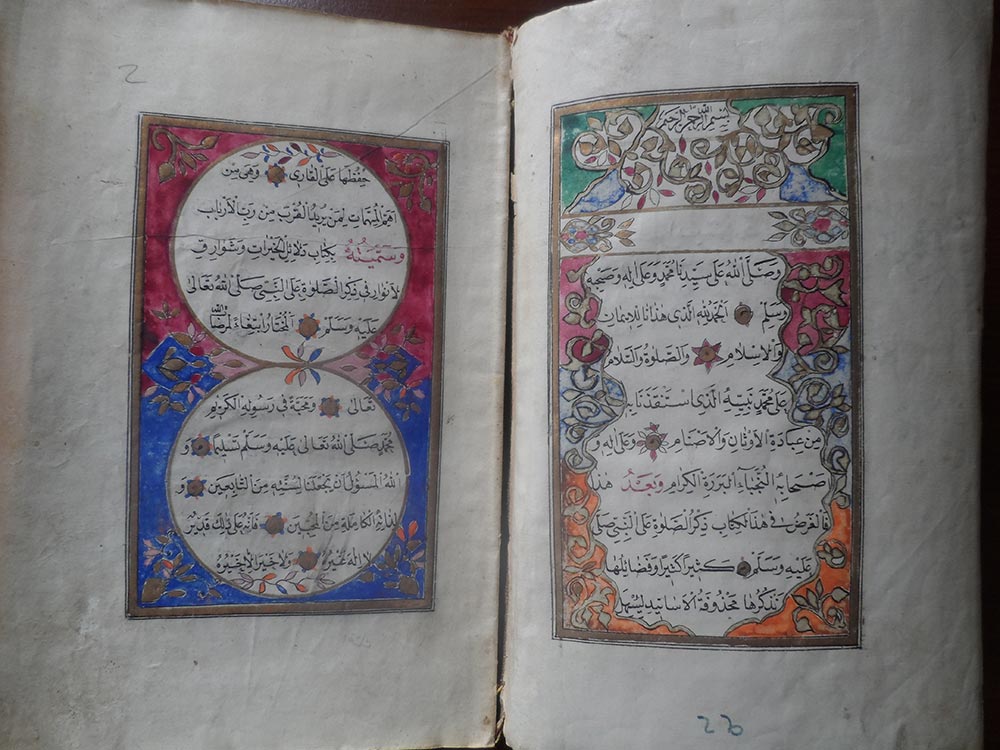 بسم الله الرحمن الرحيم
وصلى الله على سيدنا محمد وعلى اله وصحبه
وسلم الحمد لله الذى هدانا للايمان
والاسلام والصلوة والسلام
على محمد نبيه الذى استنقذنا به
من عبادة الاوثان والاصنام وعلى اله و
صحابه النجباء البررة الكرام وبعد هذا
فالغرض فى هذا الكتاب ذكر الصلوة على النبى صلى
عليه وسلم كثيرا كثيرا وفضائلها
نذكرها محذوفة الاسانيد ليسهل
220
2
حفظها على القارى وهى من
اهم المهمات لمن يريد القرب من رب الارباب
وسميته بكتاب دلائل الخيرات وشوارق
لانوار فى ذكر الصلوة على النبى صلى الله تعالى
عليه وسلم المختار ابتغاء لمرضات الله
تعالى ومحبة فى رسوله الكريم
محمد صلى الله تعالى عليه وسلم تسليما و
الله المسؤل ان يجعلنا لسنته من التابعين و
لذاته الكاملة من المحبين فانه على ذلك قدير
لا اله غيره ولا خير الا خيره